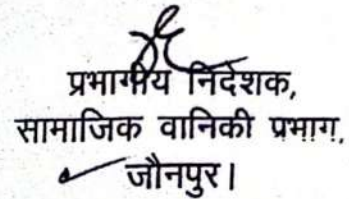 प्रभागीय निदेशक,
सामाजिक वानिकी प्रभाग,
जौनपुर।